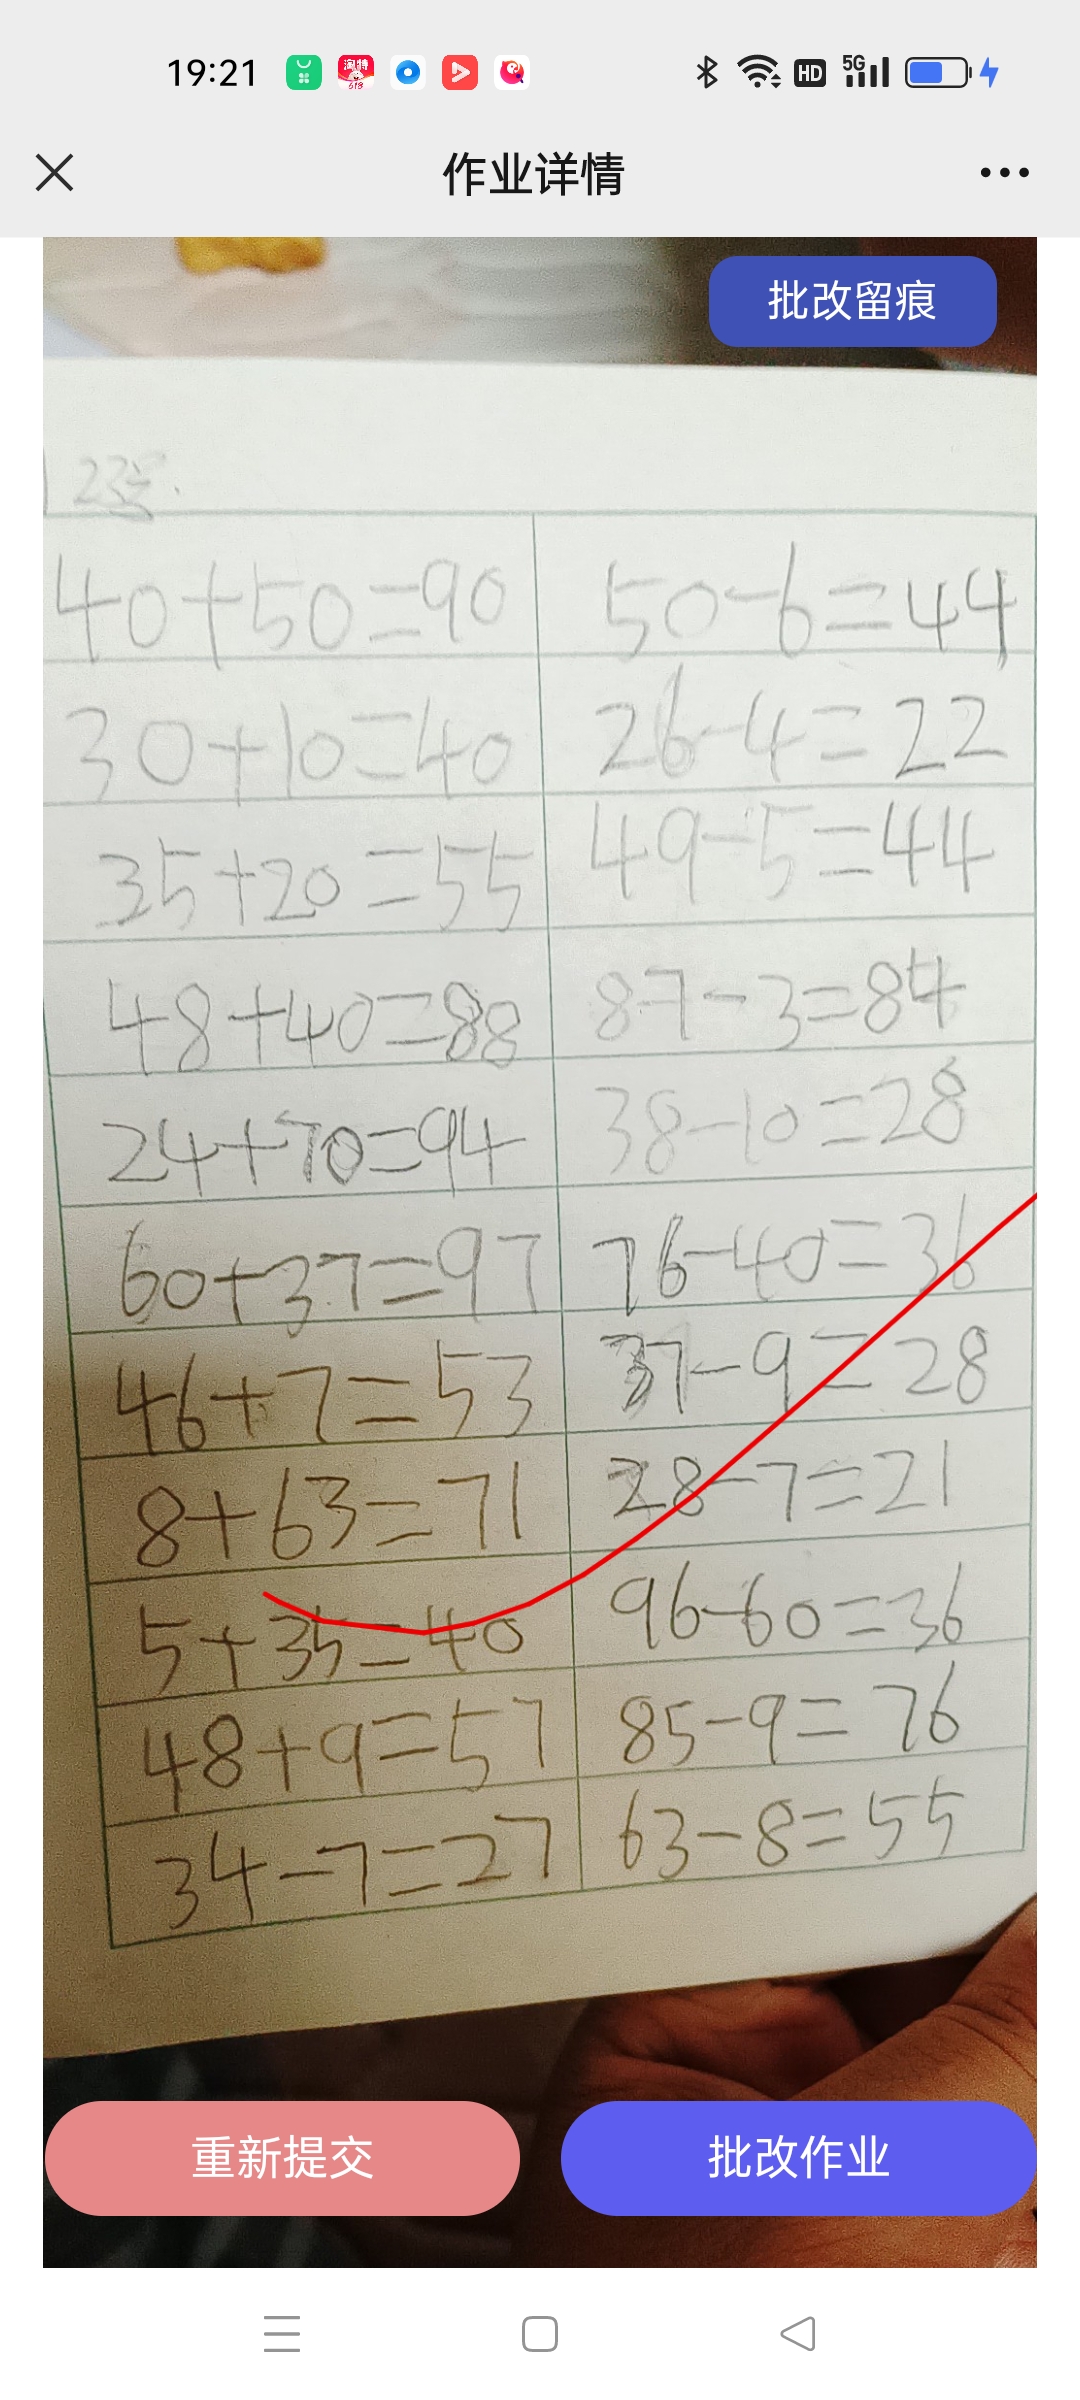 19:21
淘特
618
HD
5G
作业详情
批改留痕
23号.
40+50=90 50-6=44
30+10=40 26-4=22
35+20=55 49-5=44
48+40=88 87-3=84
24+70=94 38-10=28
60+37=97 76-40=36
46+7=53 37-9=28
8+63=71 28-7=21
5+35=40 96-60=36
48+9=57 85-9=76
34-7=27 63-8=55
重新提交 批改作业